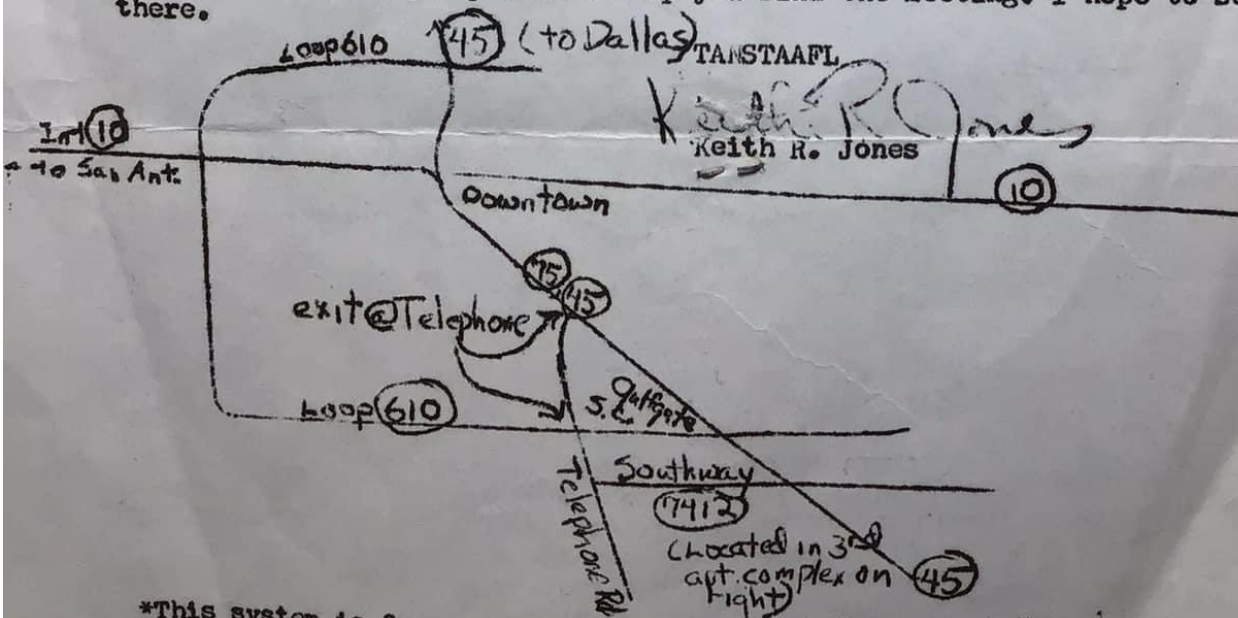 there.
Loop610
45 (to Dallas)
TANSTAAFL
Keith R Jones
Keith R. Jones
Int 10
← to San Ant.
10
Downtown
75
45
exit@Telephone
Loop 610
S.C.
Gulfgate
Telephone Rd
Southway
7412
(Located in 3rd
apt. complex on
right)
45
*This system is